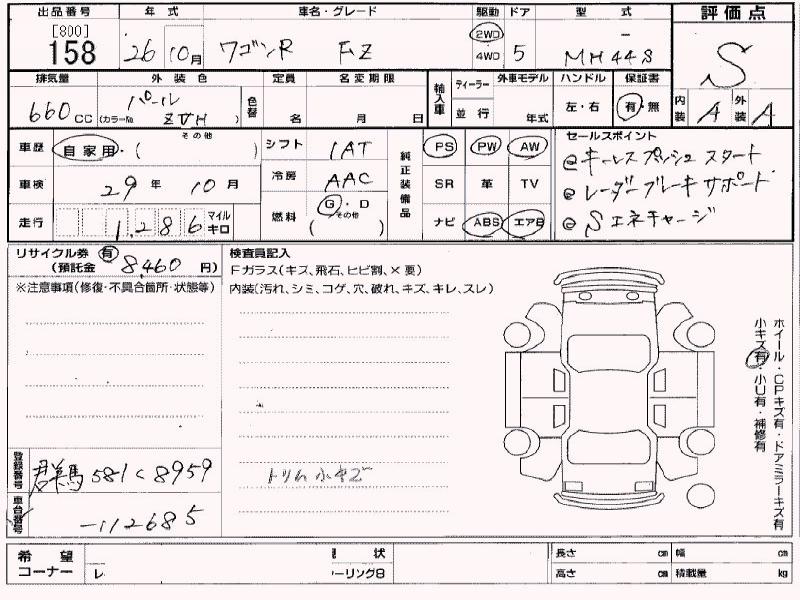 出品番号 年式 車名・グレード 駆動 ドア 型式 評価点
[800]
158 26 10月 ワゴンR FZ 2WD 4WD 5 MH44S S
排気量 外装色 定員 名変期限 輸入車 ディーラー 外車モデル ハンドル 保証書 内装 A 外装 A
660cc パール (カラーNo. ZVH) 色替 名 月 日 並行 年式 左・右 有・無
車歴 自家用・(その他) シフト 1AT 純正装備品 PS PW AW セールスポイント
@キーレスプッシュスタート
車検 29年 10月 冷房 AAC SR 革 TV
@レーダーブレーキサポード
走行 1,286 マイル キロ 燃料 G・D その他( ) ナビ ABS エアB
@Sエネチャージ
リサイクル券 有
(預託金 8,460 円)
検査員記入
Fガラス(キズ、飛石、ヒビ割、×要)
※注意事項(修復・不具合箇所・状態等)
内装(汚れ、シミ、コゲ、穴、破れ、キズ、キレ、スレ)
ホイール・CPキズ有・ドアミラーキズ有
小キズ有・小U有・補修有
トリム小キズ
登録番号 群馬 581 く 8959
車台番号 -112685
希望コーナー
レ
状
ーリング8
長さ cm 幅 cm
高さ cm 積載量 kg